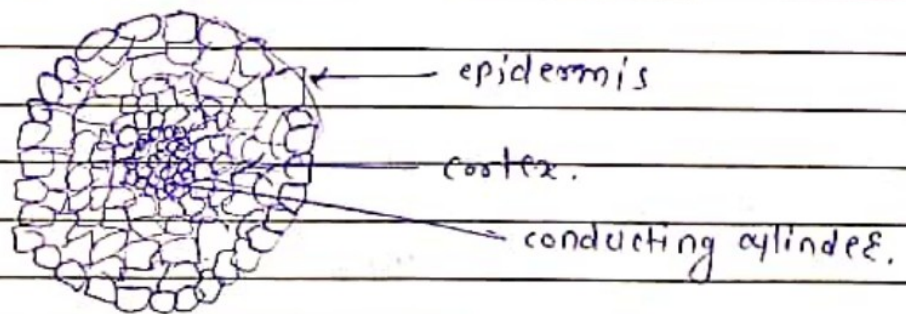 epidermis
cortex.
conducting cylinder.